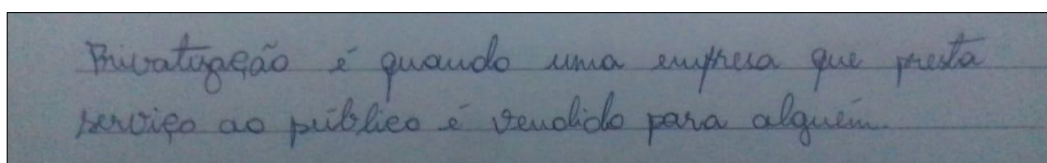 Privatização é quando uma empresa que presta
serviço ao público é vendido para alguém.